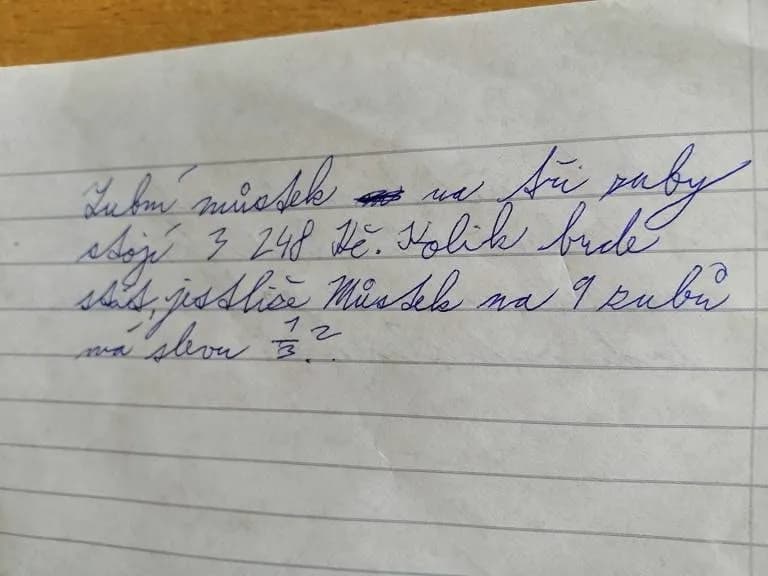 Zubní můstek na tři zuby
stojí 3 248 Kč. Kolik bude
stát, jestliže Můstek na 9 zubů
má slevu 1/3?